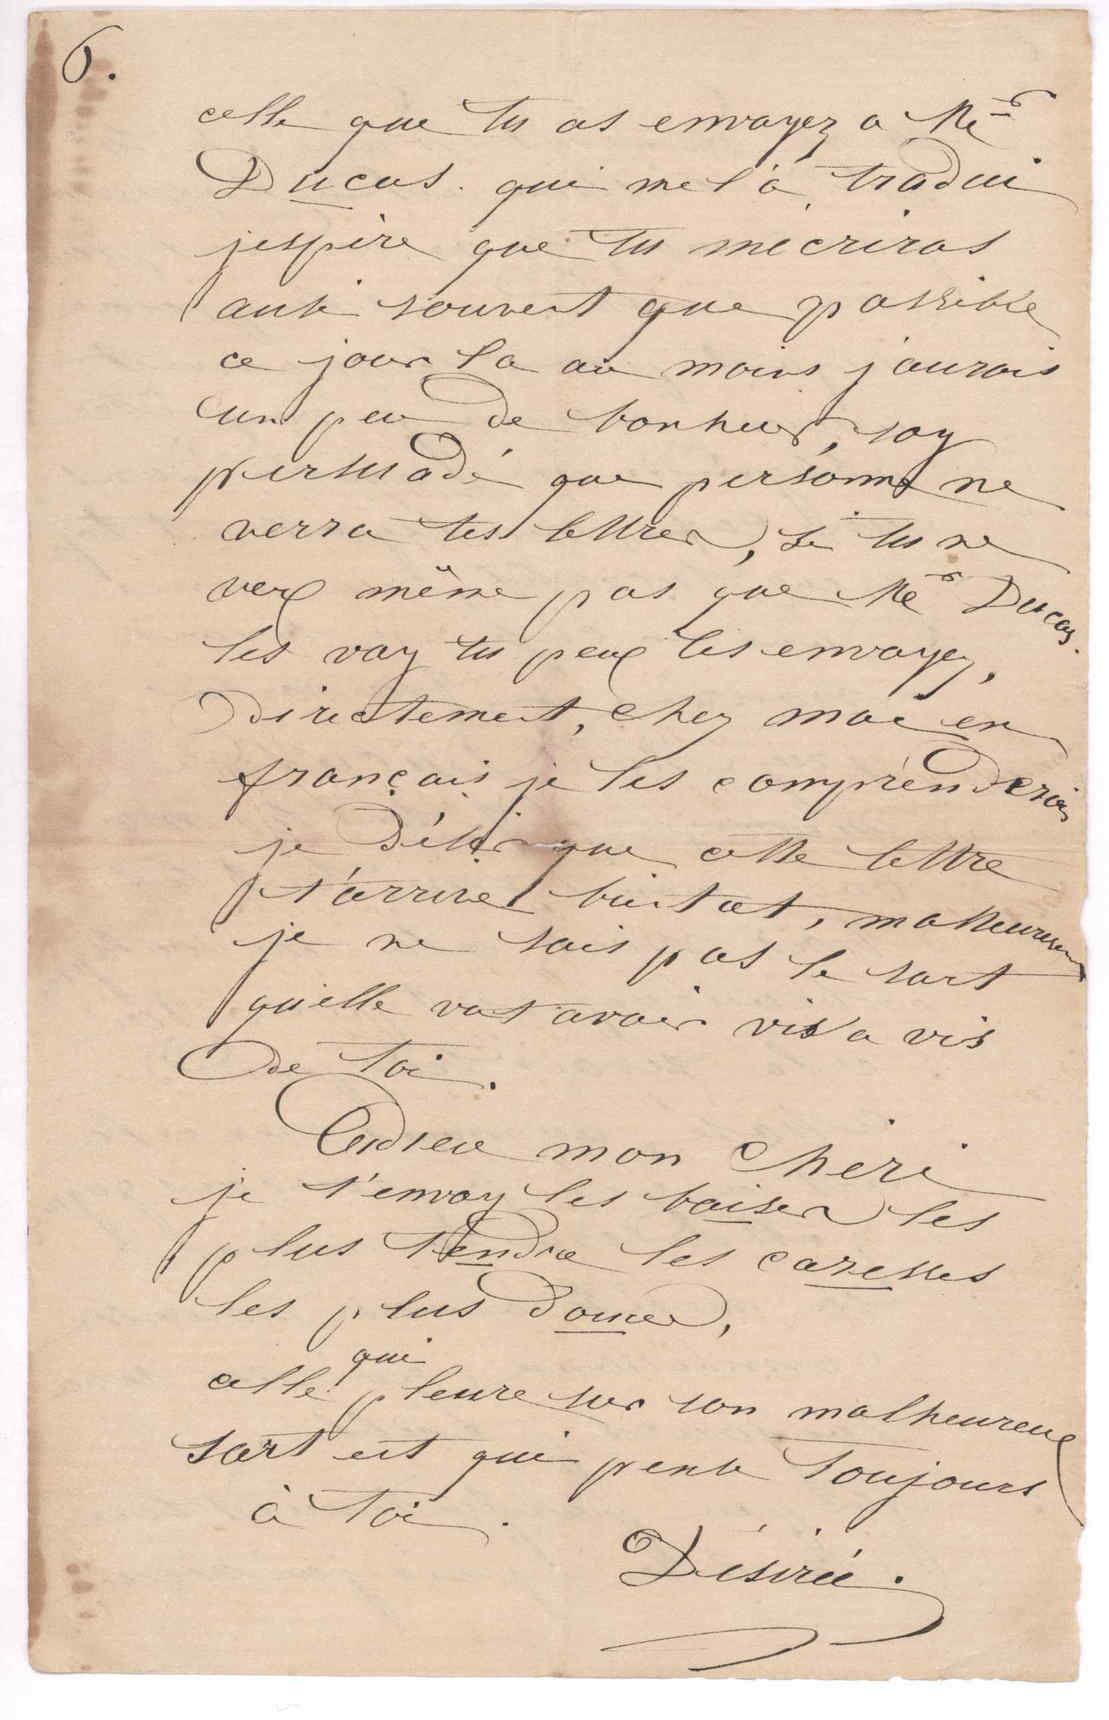 6.
celle que tu as envoyez a Mr
Ducas. qui me l'a tradui
jespère que tu mécriras
aussi souvent que possible
ce jour la au moins j'aurais
un peu de bonheur, soy
persuadé que personne ne
verra tes lettres, si tu ne
veux même pas que Mr Ducas.
les voay tu peux les envoyez,
directement, chez moi en
français je les comprenderais
je désir que cette lettre
t'arrive bientot, malheureusem
je ne sais pas le sort
qu'elle vat avoir vis a vis
de toi.
Adieu mon chéri
je t'envoy les baiser les
plus tendre les caresses
les plus douces,
qui
celle pleure sur son malheureux
sort et qui pense toujours
à toi.
Désirée.